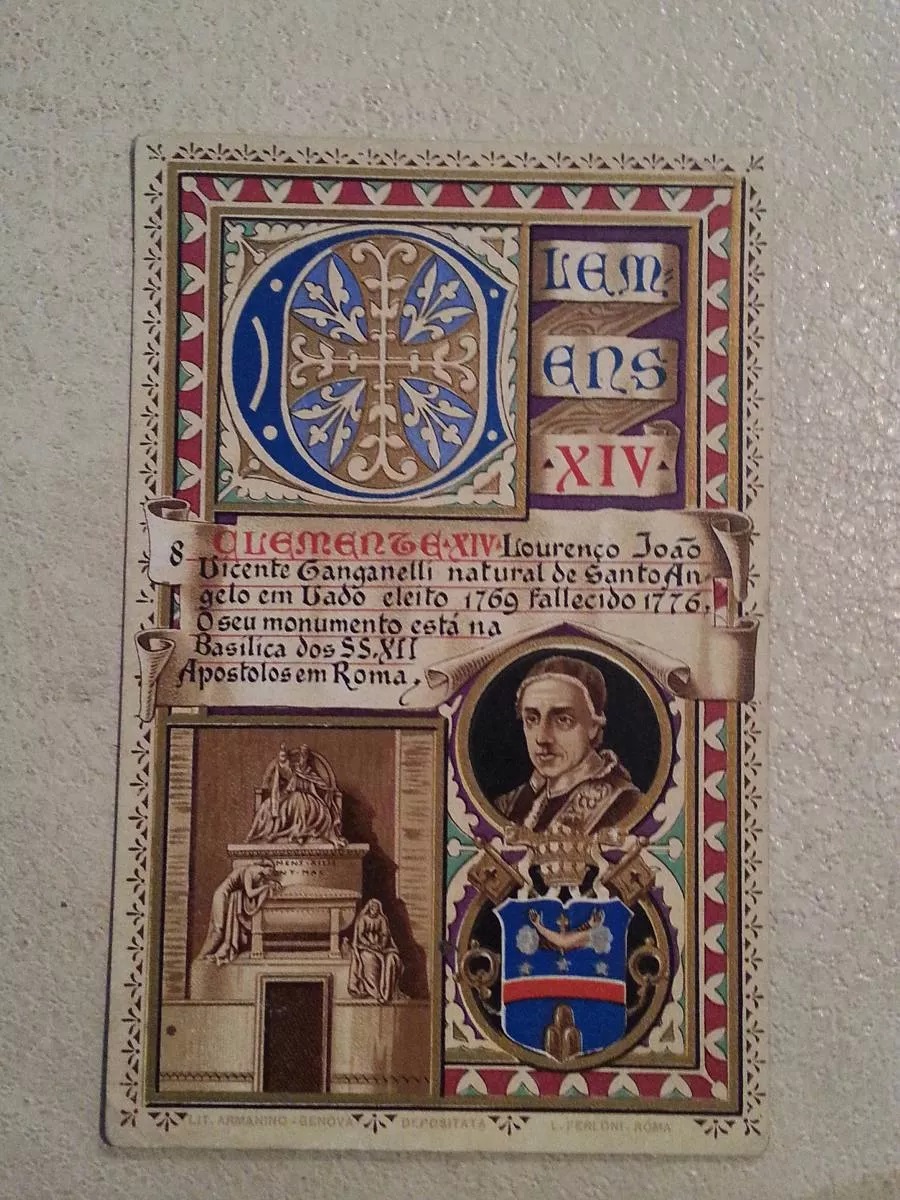 CLEM
ENS
·XIV·
8 CLEMENTE·XIV·Lourenço João
Vicente Ganganelli natural de Santo An-
gelo em Vado eleito 1769 fallecido 1776.
O seu monumento está na
Basilica dos SS.XII
Apostolos em Roma.
MENS·XIIII
NT·MAX
LIT. ARMANINO-GENOVA DEPOSITATA L. PERLONI. ROMA